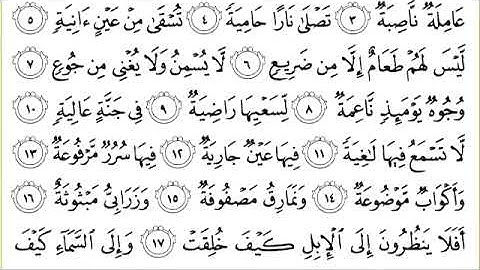 عَامِلَةٌ نَّاصِبَةٌ ٣ تَصْلَىٰ نَارًا حَامِيَةً ٤ تُسْقَىٰ مِنْ عَيْنٍ ءَانِيَةٍ ٥
لَّيْسَ لَهُمْ طَعَامٌ إِلَّا مِن ضَرِيعٍ ٦ لَّا يُسْمِنُ وَلَا يُغْنِى مِن جُوعٍ ٧
وُجُوهٌ يَوْمَئِذٍ نَّاعِمَةٌ ٨ لِّسَعْيِهَا رَاضِيَةٌ ٩ فِى جَنَّةٍ عَالِيَةٍ ١٠
لَّا تَسْمَعُ فِيهَا لَٰغِيَةً ١١ فِيهَا عَيْنٌ جَارِيَةٌ ١٢ فِيهَا سُرُرٌ مَّرْفُوعَةٌ ١٣
وَأَكْوَابٌ مَّوْضُوعَةٌ ١٤ وَنَمَارِقُ مَصْفُوفَةٌ ١٥ وَزَرَابِىُّ مَبْثُوثَةٌ ١٦
أَفَلَا يَنظُرُونَ إِلَى الْإِبِلِ كَيْفَ خُلِقَتْ ١٧ وَإِلَى السَّمَآءِ كَيْفَ